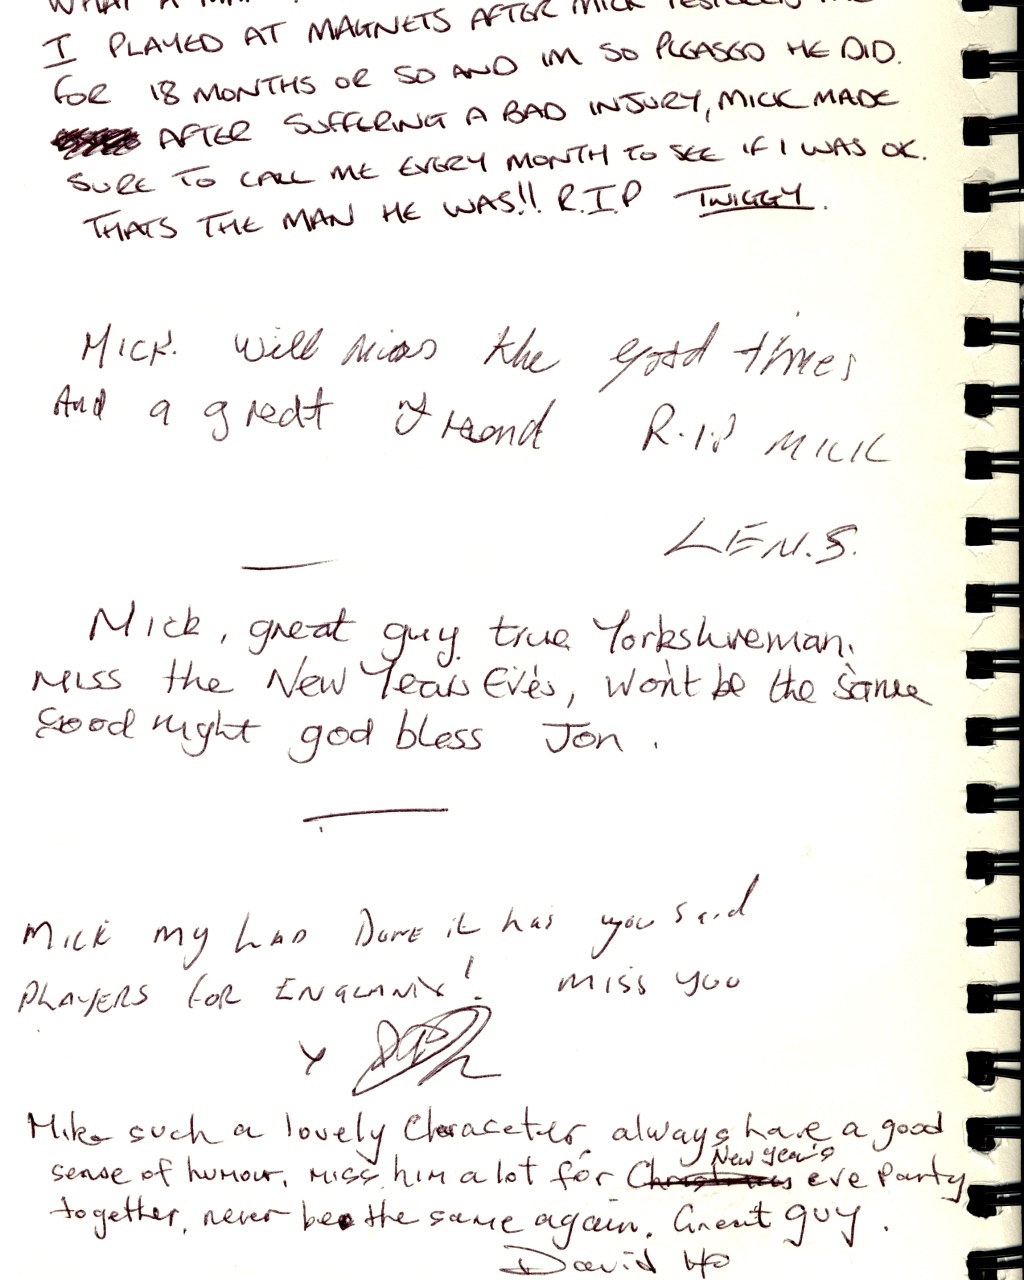 WHAT A MAN
I PLAYED AT MAGNETS AFTER MICK PESTERED ME
FOR 18 MONTHS OR SO AND IM SO PLEASED HE DID.
AFTER SUFFERING A BAD INJURY, MICK MADE
SURE TO CALL ME EVERY MONTH TO SEE IF I WAS OK.
THATS THE MAN HE WAS!! R.I.P TWIGGY.
MICK. will miss the good times
And a great friend R.I.P MICK
LEN.S.
Mick, great guy true Yorkshireman.
Miss the New Years Eve's, won't be the same
Good night god bless Jon.
MICK MY LAD DONE it has you said
PLAYERS FOR ENGLAND! MISS YOU
Mike such a lovely Characeter, always have a good
sense of humour, miss him a lot for New Year's eve party
together, never be the same again. Great guy.
David Ho